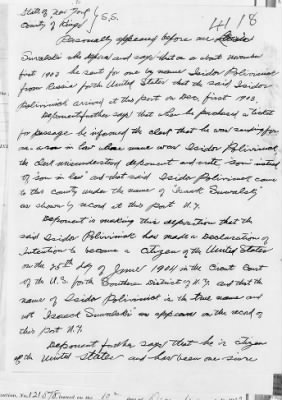 State of New York
County of Kings } S.S.
4118
Personally appeared before me
Suwalski who deposes and says that on or about November
first 1903 he sent for one by name Isidor Polivnick
from Russia for the United States that the said Isidor
Polivnick arrived at this port on Dec. first 1903.
Deponent further says that when he purchased a ticket
for passage he informed the clerk that he was sending for
son in law whose name was Isidor Polivnick
the clerk misunderstood deponent and wrote "son" instead
of "son in law" and that said Isidor Polivnick came
to this country under the name of "Isaack Suwalski"
as shown by record at this Port N.Y.
Deponent is making this deposition that the
said Isidor Polivnick has made a Declaration of
Intention to become a Citizen of the United States
on the 25th day of June 1904 in the Court
of the U.S. for the Southern District of N.Y. and that the
name of Isidor Polivnick is the true name and
not "Isaack Suwalski" as appears on the record of
this port N.Y.
Deponent further says that he is citizen
of the United States and have been one since